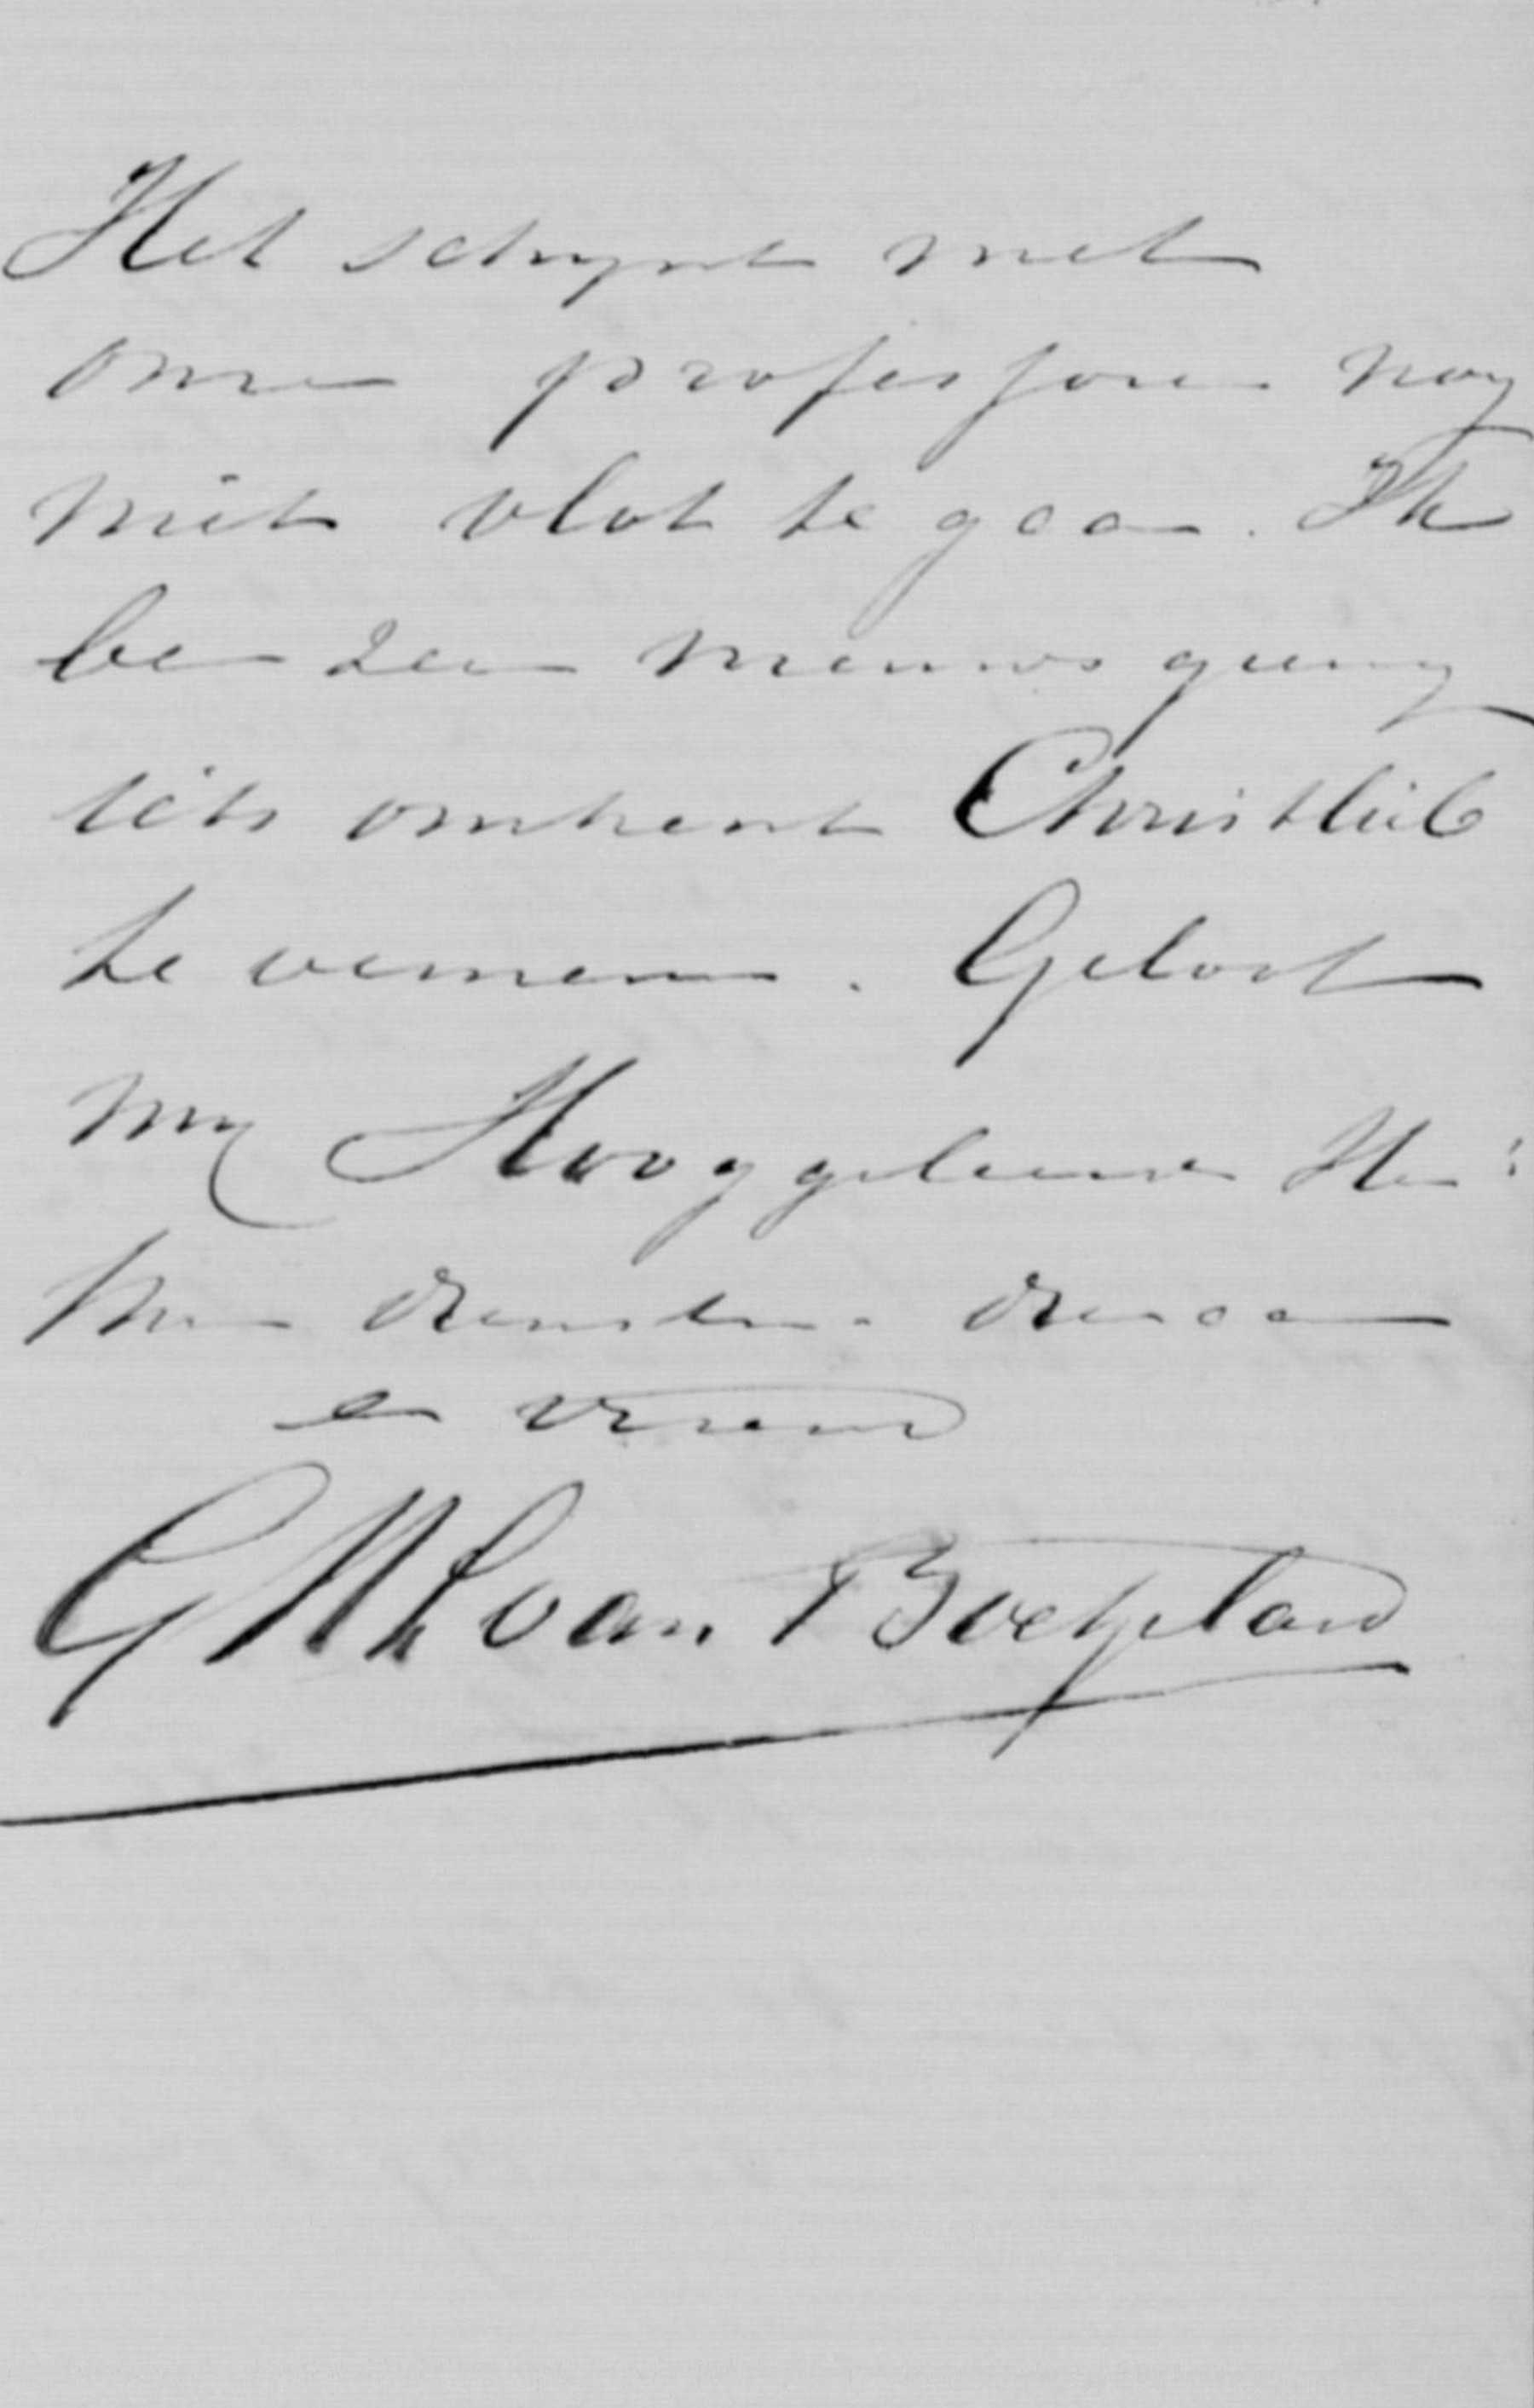 Het schynt met
onze professoren nog
niet vlot te gaan. Ik
ben zeer nieuwsgierig
iets omtrent Christlieb
te vernemen. Geloof
my Hooggeleerde Heer:
Uw dienstw. dienaar
en vriend
van Boetzelaer